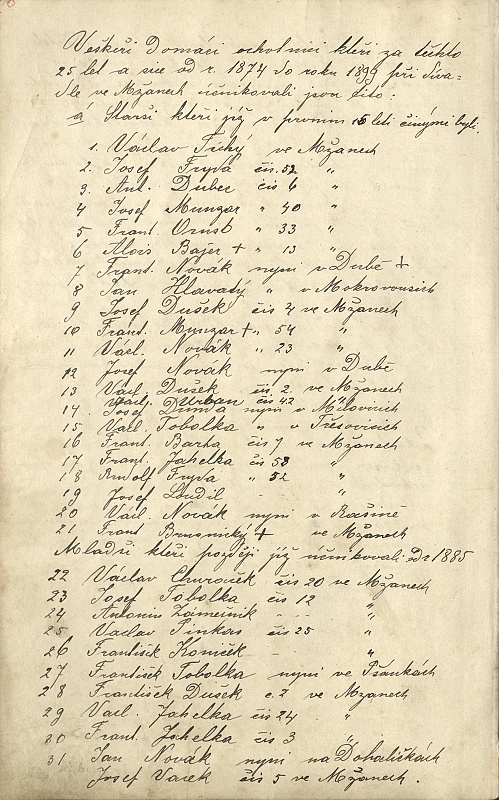 Veškeří domácí ochotníci kteří za těchto
25 let a sice od r. 1874 do roku 1899 při diva-
dle ve Mžanech účinkovali jsou tito:
a Starší kteří již v prvním 15 letí činými byli.
1. Václav Tichý ve Mžanech
2. Josef Fryda čís. 52 "
3. Ant. Duber čís 6 "
4 Josef Munzar " 40 "
5 Frant. " 33 "
6 Alois Bajer + " 13 "
7 Frant. Novák nyní v Dubě +
8 Jan Hlavatý " v Mokrovousích
9 Josef Dušek čís 4 ve Mžanech
10 Frant. Munzar + " 54 "
11 Václ. Novák " 23 "
12 Josef Novák nyní v Dubě
13 Václ Dušek čís 2. ve Mžanech
Václ. Urban čís 42 "
14. Josef Duma nyní v Milovicích
15 Václ. Tobolka " v Třesovicích
16 Frant. Barta čís 7 ve Mžanech
17 Frant. Jahelka čís 53 "
18 Rudolf Fryda " 52 "
19 Josef Loudil - "
20 Václ. Novák nyní v Rašíně
21 Frant Brusnický + ve Mžanech
Mladší kteří později již účinkovali od r 1885
22 Václav čís 20 ve Mžanech
23 Josef Tobolka čís 12 "
24 Antonín Zámečník "
25 Václav Pinkas čís 25 "
26 František - "
27 František Tobolka nyní ve Pšánkách
28 František Dušek č. 2 ve Mžanech
29 Václ. Jahelka čís 24 "
20 Frant. Jahelka čís 3 "
31 Jan Novák nyní na Dohaličkách
Josef Vacek čís 5 ve Mžanech.